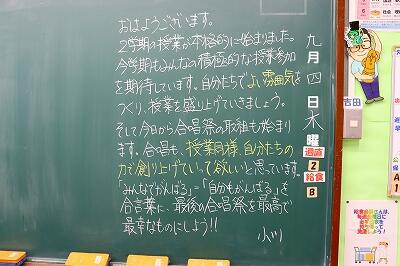 おはようございます。
2学期の授業が本格的に始まりました。
今学期もみんなの積極的な授業参加
を期待しています。自分たちでよい雰囲気を
つくり、授業を盛り上げていきましょう。
そして今日から合唱祭の取組も始まり
ます。合唱も、授業同様、自分たちの
力で創り上げていって欲しいと思っています。
「みんなでがんばる」=「自分もがんばる」を
合言葉に、最後の合唱祭を最高で
最幸なものにしよう!!
小川
九月四日木曜
週直
2
給食
B
吉田
給食